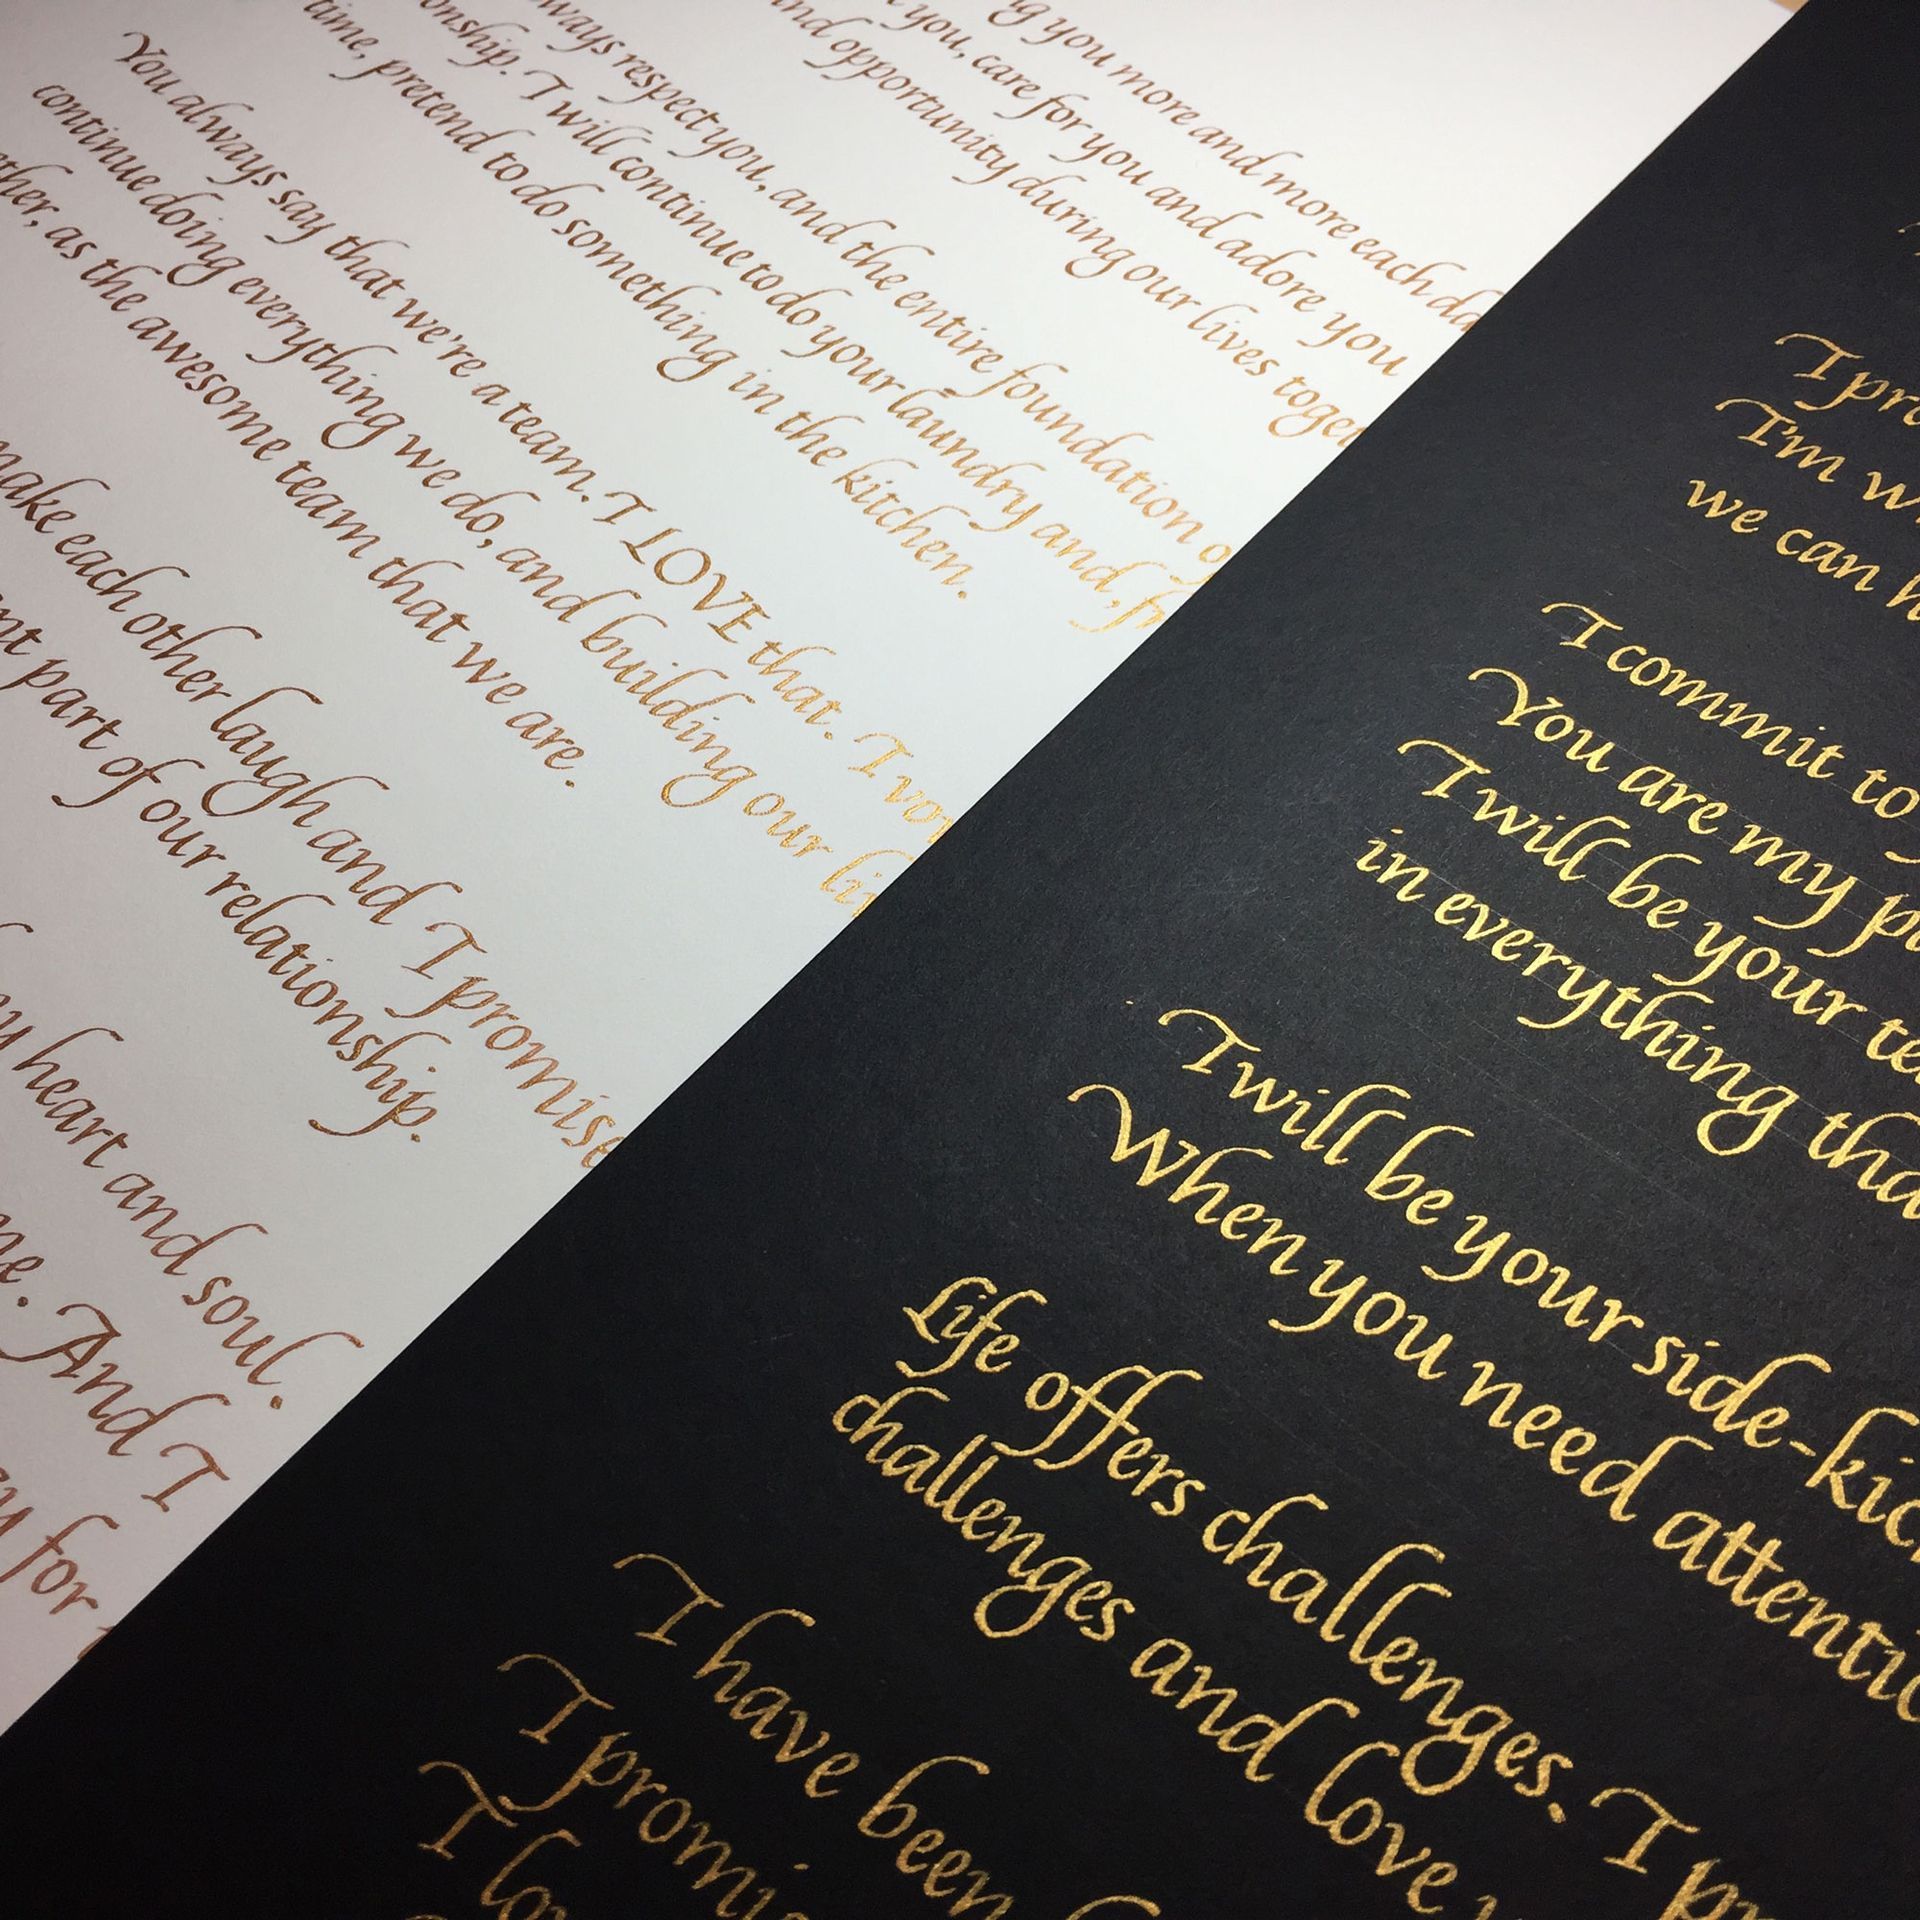 you more and more each
you, care for you and adore you
and opportunity during our lives
respect you, and the entire foundation
I will continue to do your laundry and,
time, pretend to do something in the kitchen.
You always say that we're a team. I LOVE that. I
continue doing everything we do, and building our
as the awesome team that we are.
make each other laugh and I promise
part of our relationship.
heart and soul.
And I
for
I
I'm
we can
I commit to
You are my
I will be your
in everything
I will be your side-
When you need
Life offers challenges. I
challenges and love
I have been
I
I